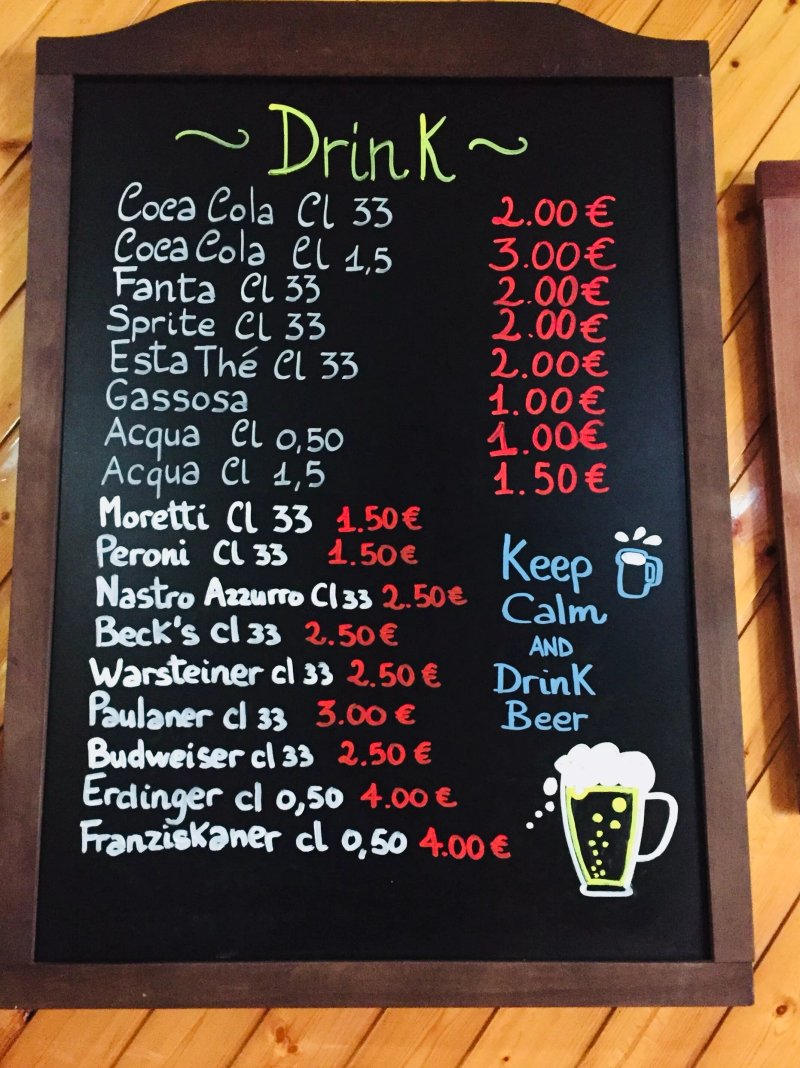 ~ Drink ~
Coca Cola Cl 33 2.00 €
Coca Cola Cl 1,5 3.00 €
Fanta Cl 33 2.00 €
Sprite Cl 33 2.00 €
Esta Thé Cl 33 2.00 €
Gassosa 1.00 €
Acqua Cl 0,50 1.00 €
Acqua Cl 1,5 1.50 €
Moretti Cl 33 1.50 €
Peroni Cl 33 1.50 €
Nastro Azzurro Cl 33 2.50 €
Beck's cl 33 2.50 €
Warsteiner cl 33 2.50 €
Paulaner cl 33 3.00 €
Budweiser cl 33 2.50 €
Erdinger cl 0,50 4.00 €
Franziskaner cl 0,50 4.00 €
Keep
Calm
AND
Drink
Beer